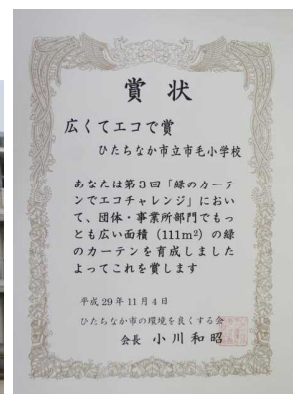 賞状
広くてエコで賞
ひたちなか市立市毛小学校
あなたは第3回「緑のカーテ
ンでエコチャレンジ」におい
て、団体・事業所部門でもっ
とも広い面積（111m²）の緑
のカーテンを育成しました
よってこれを賞します
平成29年11月4日
ひたちなか市の環境を良くする会
会長 小川和昭